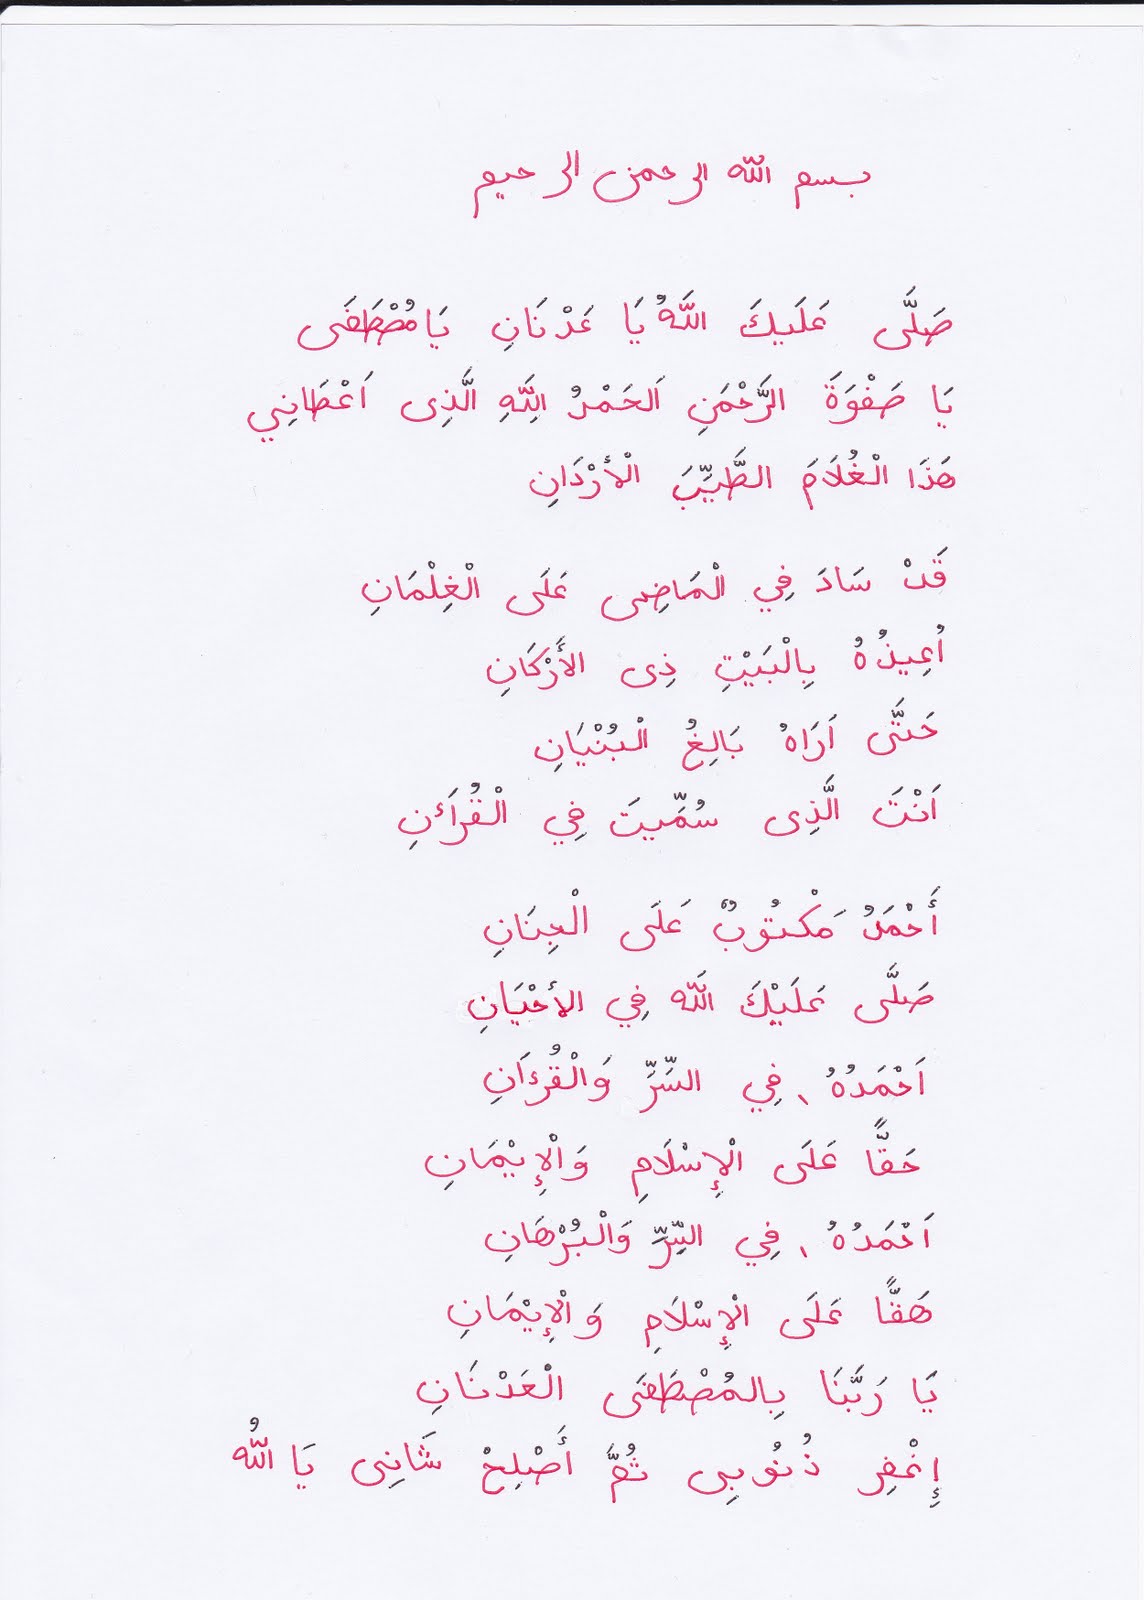 بسم الله الرحمن الرحيم
صَلَّى عَلَيكَ اللَّهُ يَا عَدْنَانِ يَامُصْطَفَى
يَا صَفْوَةَ الرَّحْمَنِ اَلحَمْدُ لِلَّهِ الَّذِى اَعْطَانِي
هَذَا الْغُلَامَ الطَّيِّبَ الْأَرْدَانِ
قَدْ سَادَ فِي الْمَاضِى عَلَى الْغِلْمَانِ
اُعِيذُهُ بِالْبَيْتِ ذِى الأَرْكَانِ
حَتَّى اَرَاهُ بَالِغُ الْبُنْيَانِ
اَنْتَ الَّذِى سُمِّيتَ فِي الْقُرَاَءنِ
أَحْمَدُ مَكْتُوبٌ عَلَى الْجِنَانِ
صَلَّى عَلَيْكَ اللَّه فِي الأحْيَانِ
اَحْمَدُهُ، فِي السِّرِّ وَالْقُرْءَانِ
حَقًّا عَلَى الْإِسْلَامِ وَالْإِيْمَانِ
اَحْمَدُهُ، فِي السِّرِّ وَالْبُرْهَانِ
هَقًّا عَلَى الْإِسْلَامِ وَالْإِيْمَانِ
يَا رَبَّنَا بِالمُصْطَفَى الْعَدْنَانِ
إِغْفِر ذُنُوبِى ثُمَّ أَصْلِحْ شَانِى يَا اللهُ